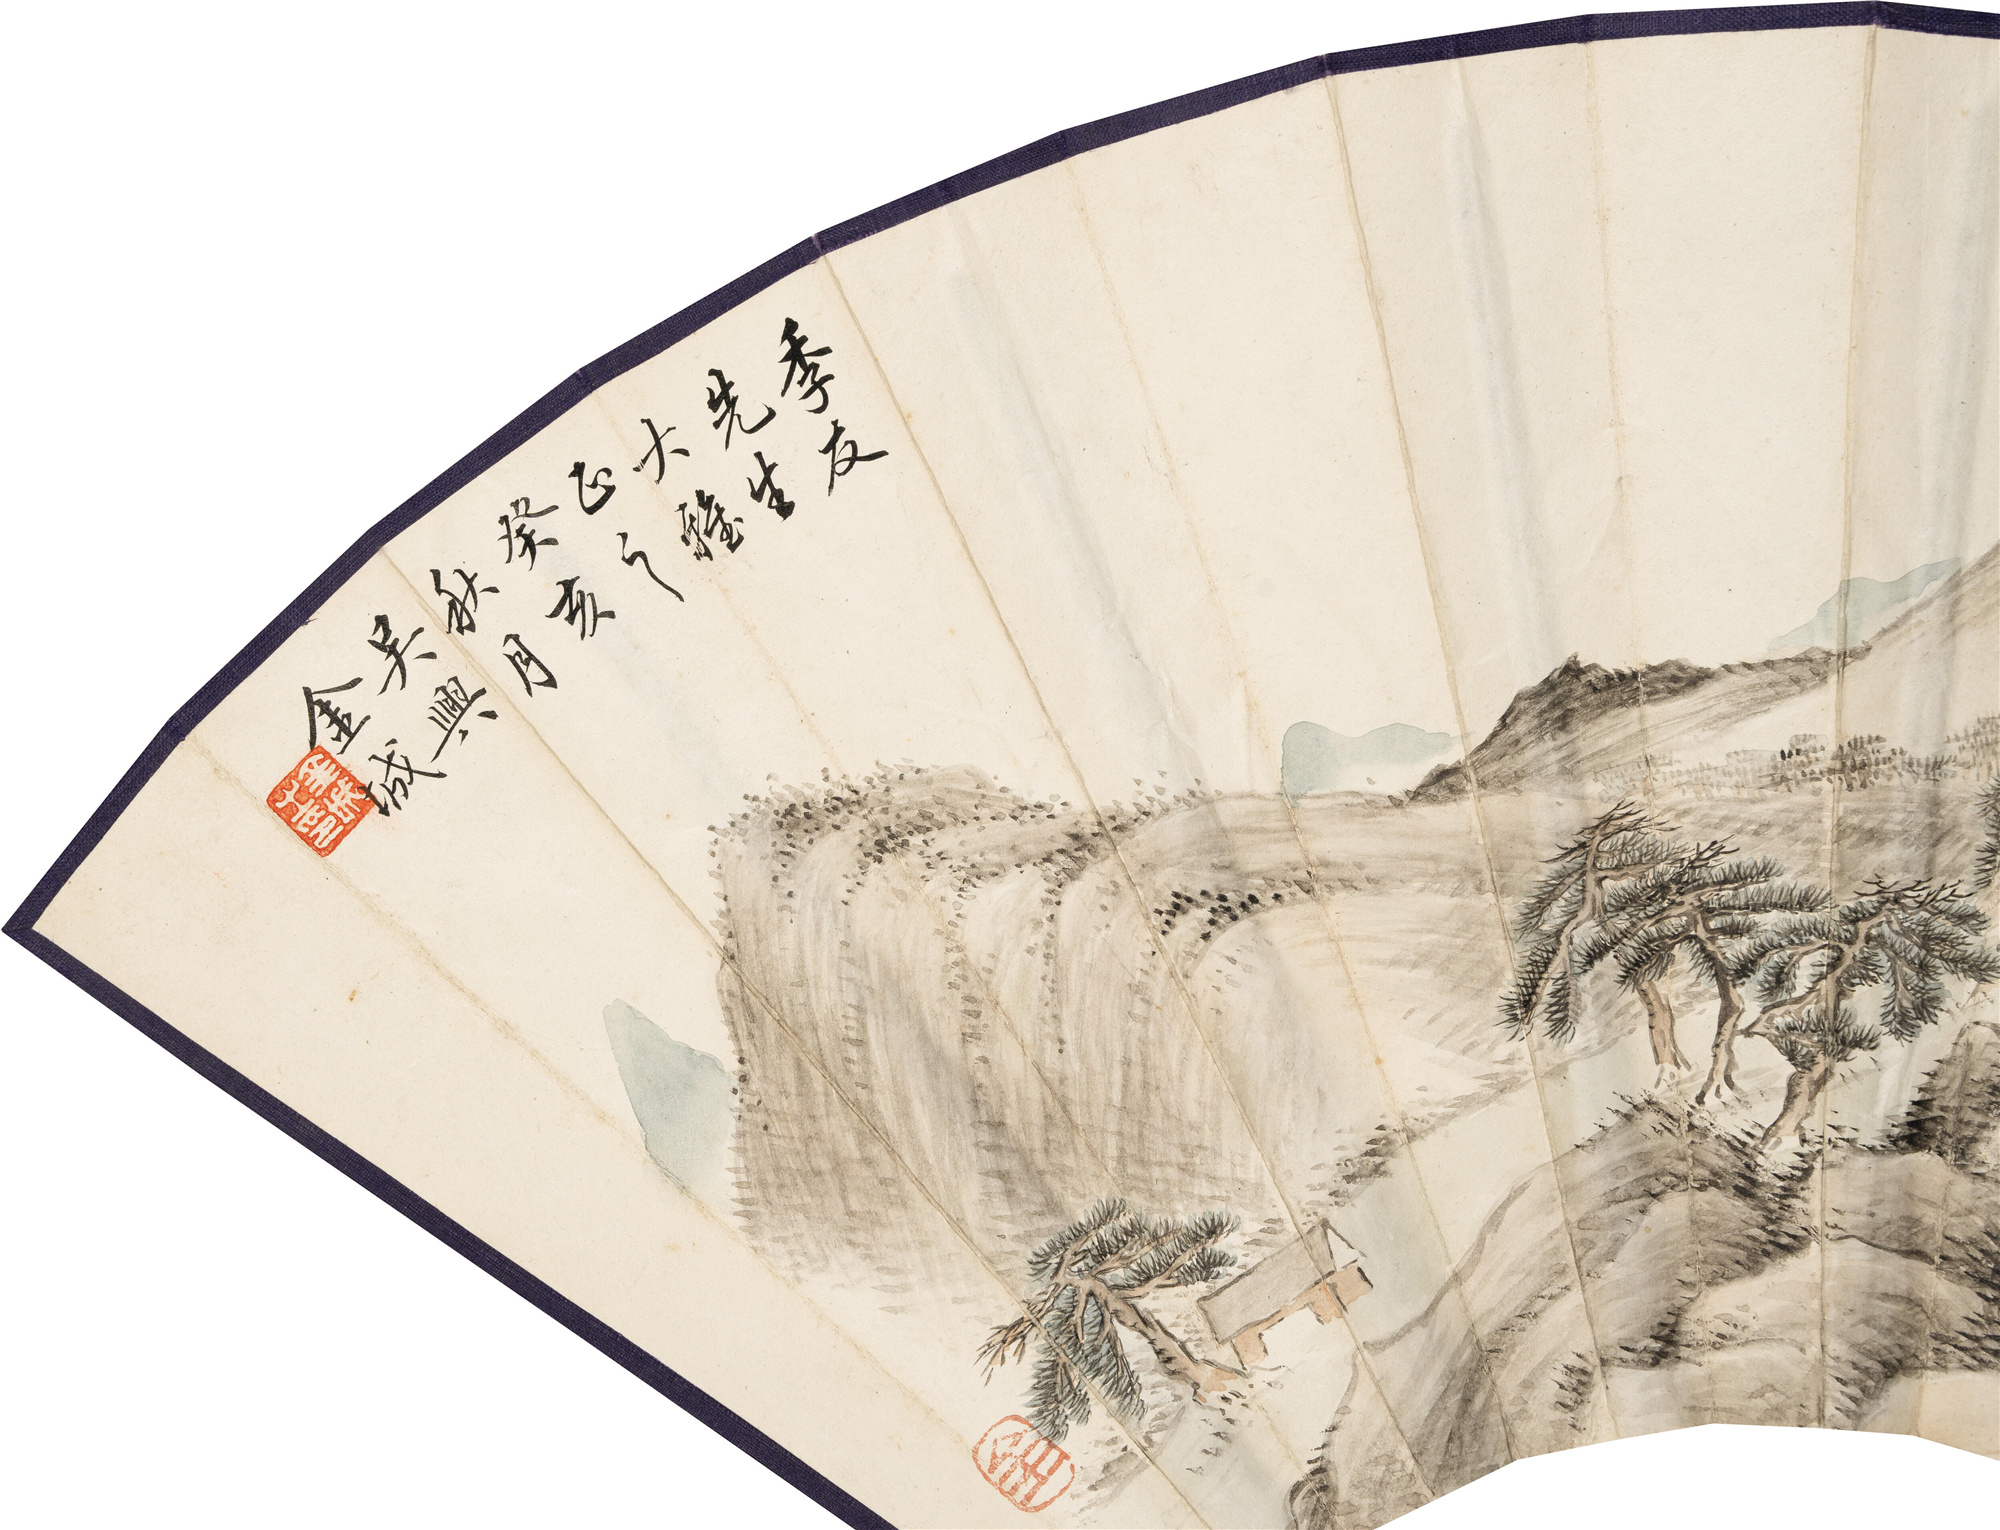 季友
先生
大雅
正之
癸亥
秋月
吳興
金城